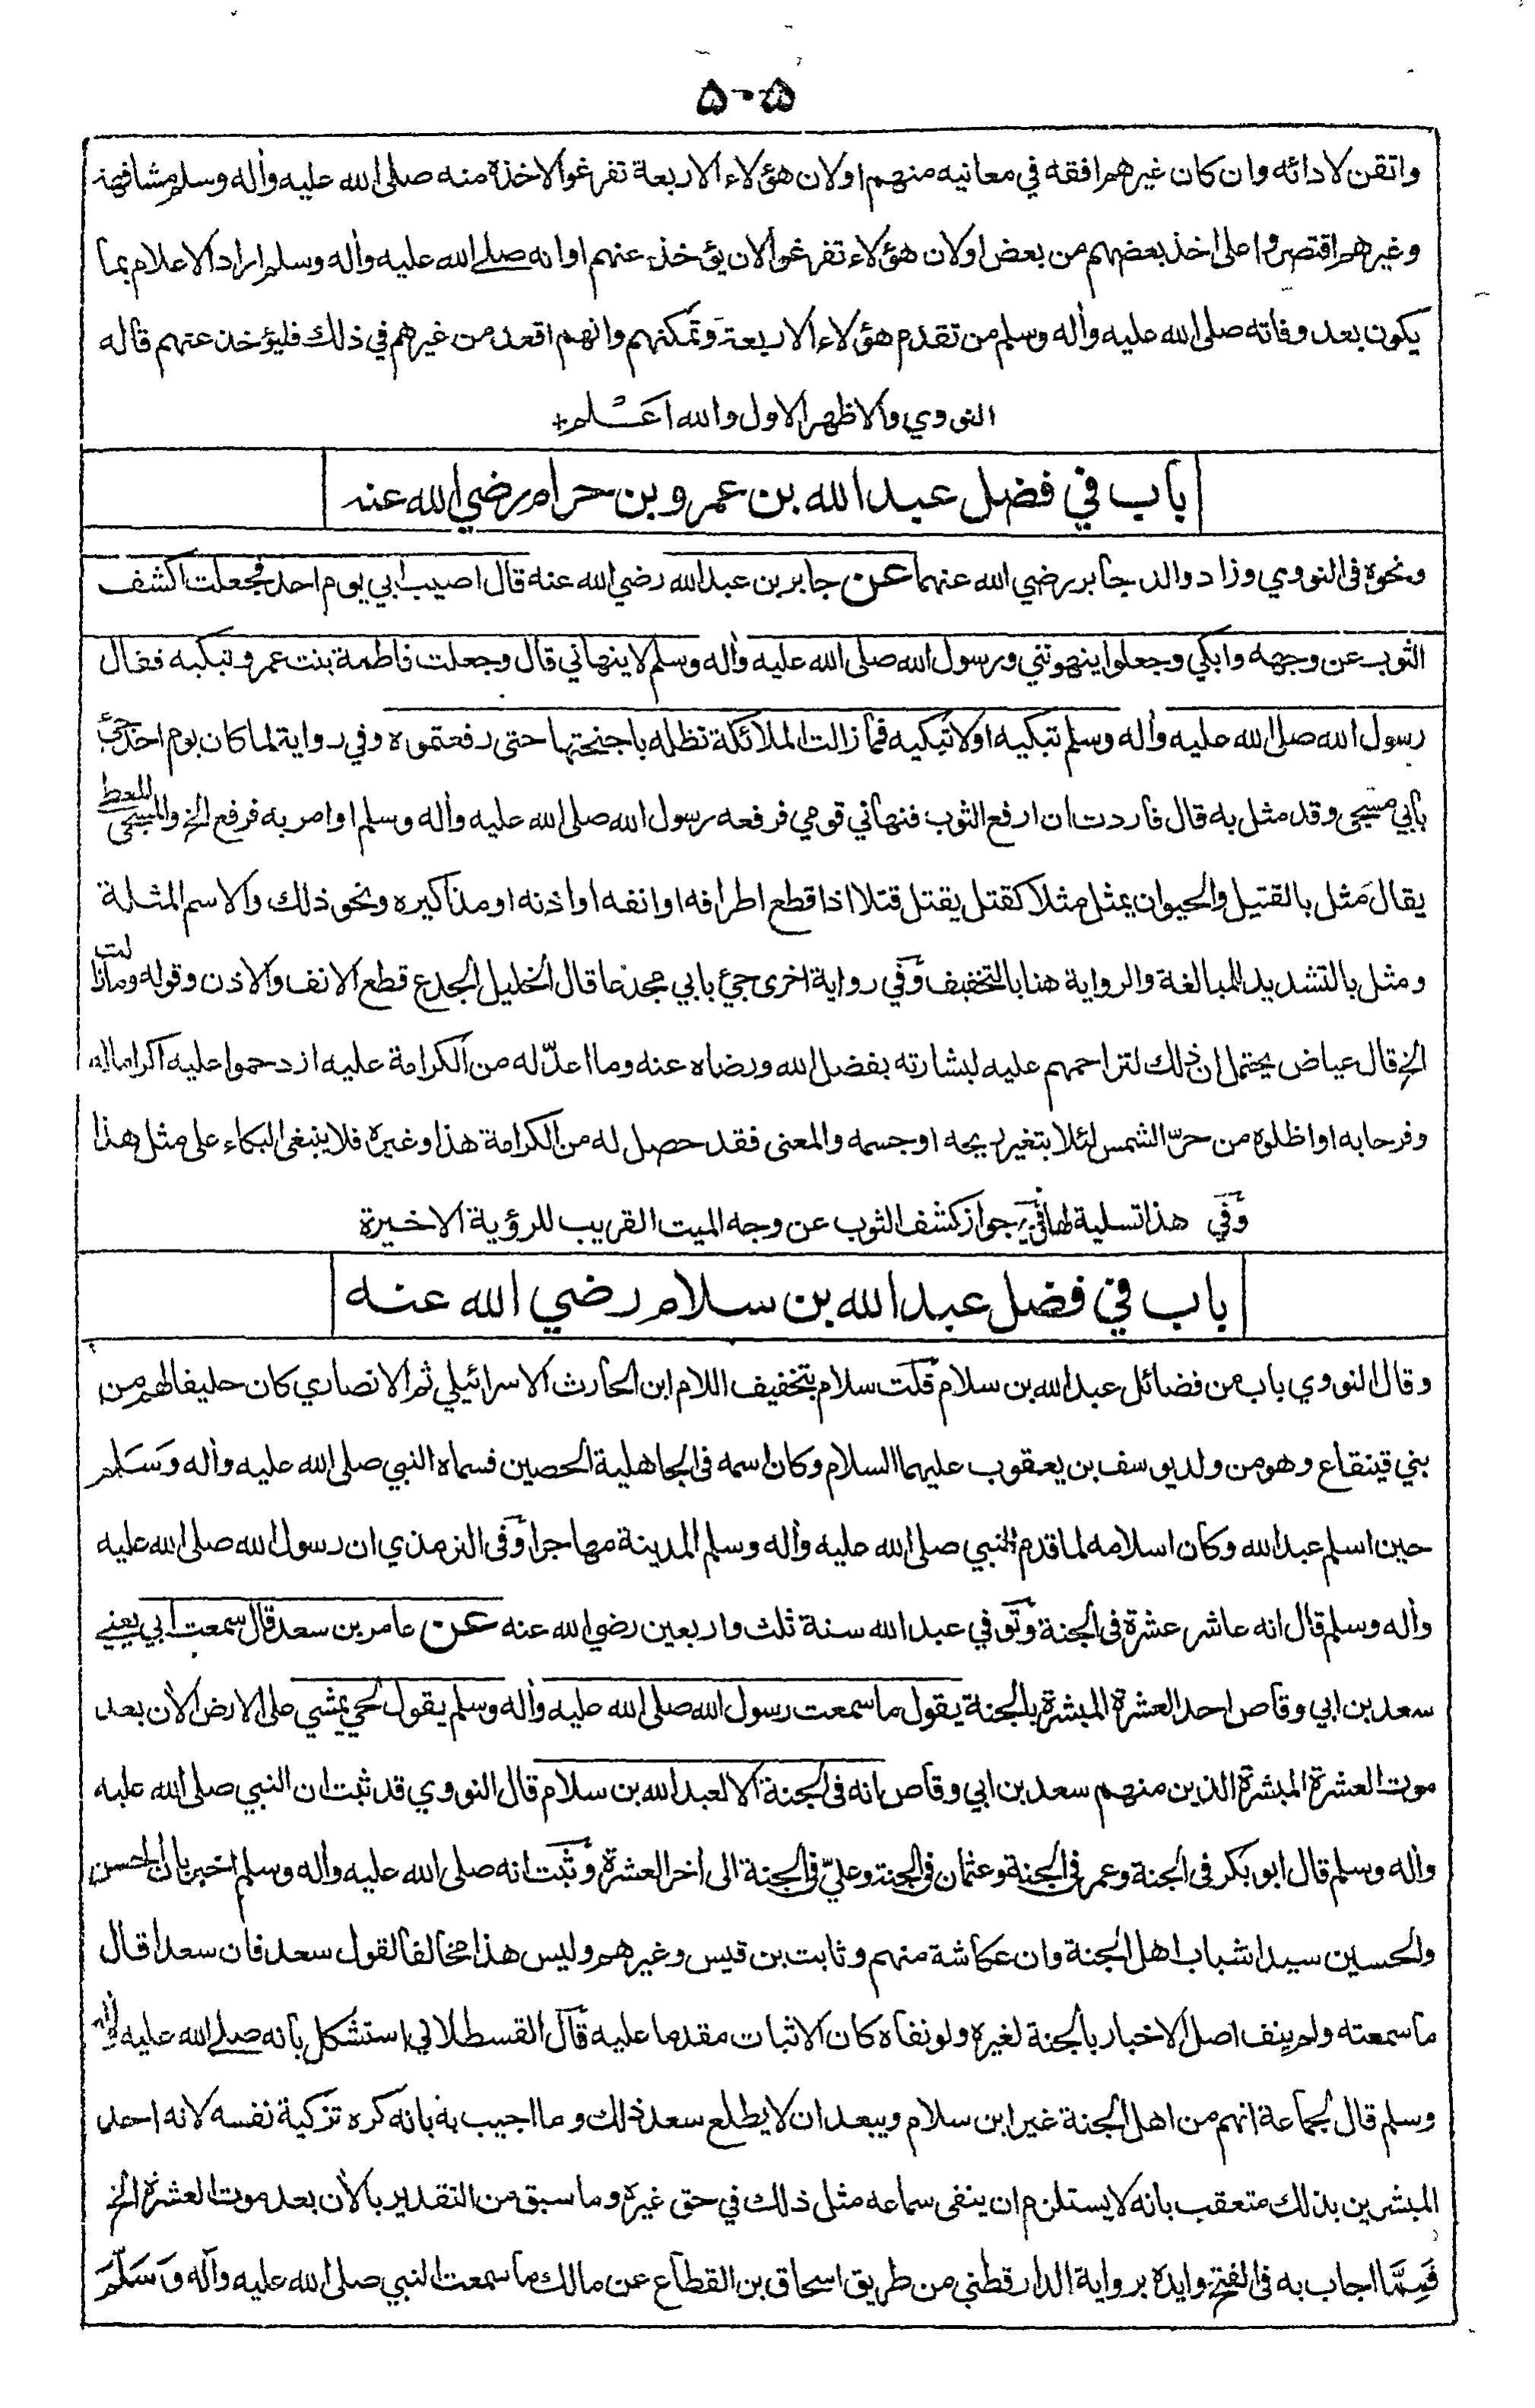 ۵۰۵
واتقن لادائه وان كان غيرهم افقه في معانيه منهم اولان هؤلاء الاربعة تفرغوا لاخذه منه صلى الله عليه وأله وسلم مشافهة
وغيرهم اقتصروا على اخذ بعضهم من بعض اولان هؤلاء تفرغوا لان يؤخذ عنهم اوانه صلى الله عليه وأله وسلم اراد الاعلام بما
يكون بعد وفاته صلى الله عليه وأله وسلم من تقدم هؤلاء الاربعة وتمكنهم وانهم اقعد من غيرهم في ذلك فليؤخذ عنهم قاله
النووي والاظهر الاول والله اعلم+
باب في فضل عبد الله بن عمرو بن حرام رضي الله عنه
ونحوه فى النووي وزاد والد جابر رضي الله عنهما عن جابر بن عبد الله رضي الله عنه قال اصيب ابي يوم احد فجعلت اكشف
الثوب عن وجهه وابكي وجعلوا ينهونني ورسول الله صلى الله عليه وأله وسلم لا ينهاني قال وجعلت فاطمة بنت عمرو تبكيه فقال
رسول الله صلى الله عليه وأله وسلم تبكيه اولا تبكيه فما زالت الملائكة تظله باجنحتها حتى رفعتموه وفي رواية لما كان يوم احد جئ
بابي مسجى وقد مثل به قال فاردت ان ارفع الثوب فنهاني قومي فرفعه رسول الله صلى الله عليه وأله وسلم او امر به فرفع الخ والمسجى المغطى
يقال مَثل بالقتيل والحيوان يمثل مثلا كقتل يقتل قتلا اذا قطع اطرافه او انفه او اذنه او مذاكيره ونحو ذلك والاسم المثلة
ومثل بالتشديد للمبالغة والرواية هنا بالتخفيف وفي رواية اخرى جئ بابي مجدعا قال الخليل الجدع قطع الانف والاذن وقوله ومازالت
الخ قال عياض يحتمل ان ذلك لتزاحمهم عليه لبشارته بفضل الله ورضاه عنه وما اعدّ له من الكرامة عليه ازدحموا عليه اكراما له
وفرحا به او اظلوه من حرّ الشمس لئلا يتغير ريحه او جسمه والمعنى فقد حصل له من الكرامة هذا وغيره فلا ينبغى البكاء على مثل هذا
وفي هذا تسلية لها وفيه جواز كشف الثوب عن وجه الميت القريب للرؤية الاخيرة
باب في فضل عبد الله بن سلام رضي الله عنه
وقال النووي باب من فضائل عبد الله بن سلام قلت سلام بتخفيف اللام ابن الحارث الاسرائيلي ثم الانصاري كان حليفا لهم من
بني قينقاع وهو من ولد يوسف بن يعقوب عليهما السلام وكان اسمه فى الجاهلية الحصين فسماه النبي صلى الله عليه وأله وَسَلم
حين اسلم عبد الله وكان اسلامه لما قدم النبي صلى الله عليه وأله وسلم المدينة مهاجرا وفى الترمذي ان رسول الله صلى الله عليه
وأله وسلم قال انه عاشر عشرة فى الجنة وتوفي عبد الله سنة ثلث واربعين رضي الله عنه عن عامر بن سعد قال سمعت ابي يعني
سعد بن ابي وقاص احد العشرة المبشرة بالجنة يقول ما سمعت رسول الله صلى الله عليه وأله وسلم يقول لحي يمشي على الارض الأن بعد
موت العشرة المبشرة الذين منهم سعد بن ابي وقاص انه فى الجنة الا لعبد الله بن سلام قال النووي قد ثبت ان النبي صلى الله عليه
وأله وسلم قال ابو بكر فى الجنة وعمر فى الجنة وعثمان فى الجنة وعليّ فى الجنة الى أخر العشرة وثبت انه صلى الله عليه وأله وسلم اخبر بان الحسن
والحسين سيدا شباب اهل الجنة وان عكاشة منهم وثابت بن قيس وغيرهم وليس هذا مخالفا لقول سعد فان سعدا قال
ما سمعته ولم ينف اصل الاخبار بالجنة لغيره ولو نفاه كان الاثبات مقدما عليه قال القسطلاني استشكل بانه صلى الله عليه وأله
وسلم قال لجماعة انهم من اهل الجنة غير ابن سلام ويبعد ان لا يطلع سعد ذلك وما اجيب به بانه كره تزكية نفسه لانه احد
المبشرين بذلك متعقب بانه لا يستلزم ان ينفى سماعه مثل ذلك في حق غيره وما سبق من التقدير بالأن بعد موت العشرة الخ
فَمِمَّا اجاب به فى الفتح وايده برواية الدارقطني من طريق اسحاق بن القطاع عن مالك ما سمعت النبي صلى الله عليه وآله وَسَلَّمَ